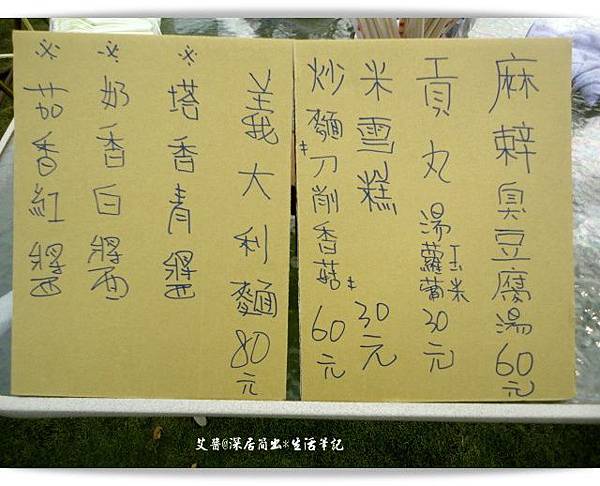 麻辣臭豆腐湯60元
貢丸湯蘿蔔玉米30元
米雪糕30元
炒麵*刀削香菇*60元
義大利麵80元
※塔香青醬
※奶香白醬
※茄香紅醬
艾醬@深居簡出*生活筆記